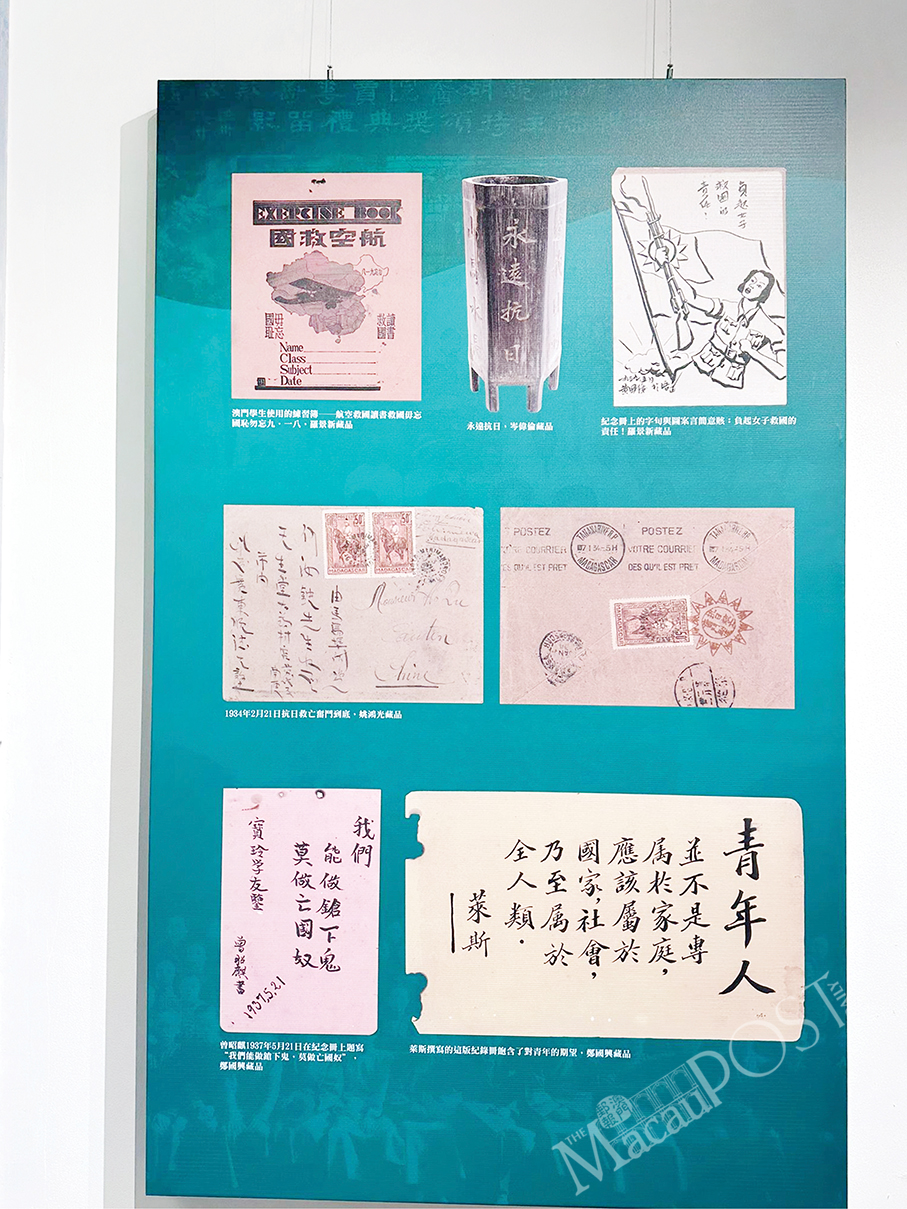 EXERCISE BOOK
航空救國
九一八
毋忘國恥
讀書救國
Name
Class
Subject
Date
澳門學生使用的練習簿——航空救國讀書救國毋忘
國恥勿忘九·一八,羅景新藏品
永遠抗日
永遠抗日,岑偉倫藏品
負起女子
救國的
責任!
紀念冊上的字句與圖案言簡意賅:負起女子救國的
責任!羅景新藏品
50
50
MADAGASCAR
MADAGASCAR
Canton
Chine
1934年2月21日抗日救亡奮鬥到底,姚鴻光藏品
POSTEZ
VOTRE COURRIER
DES QU'IL EST PRET
TANANARIVE R.P.
MADAGASCAR
POSTEZ
VOTRE COURRIER
DES QU'IL EST PRET
MADAGASCAR
我們
能做鎗下鬼
莫做亡国奴
寶玲学友鑒
曾昭麒書
1937.5.21
曾昭麒1937年5月21日在紀念冊上題寫
“我們能做鎗下鬼,莫做亡國奴”,
鄭國興藏品
青年人
並不是專
属於家庭,
應該屬於
國家,社會,
乃至属於
全人類.
萊斯
萊斯撰寫的這版紀錄冊飽含了對青年的期望,鄭國興藏品
THE MacauPOST DAILY